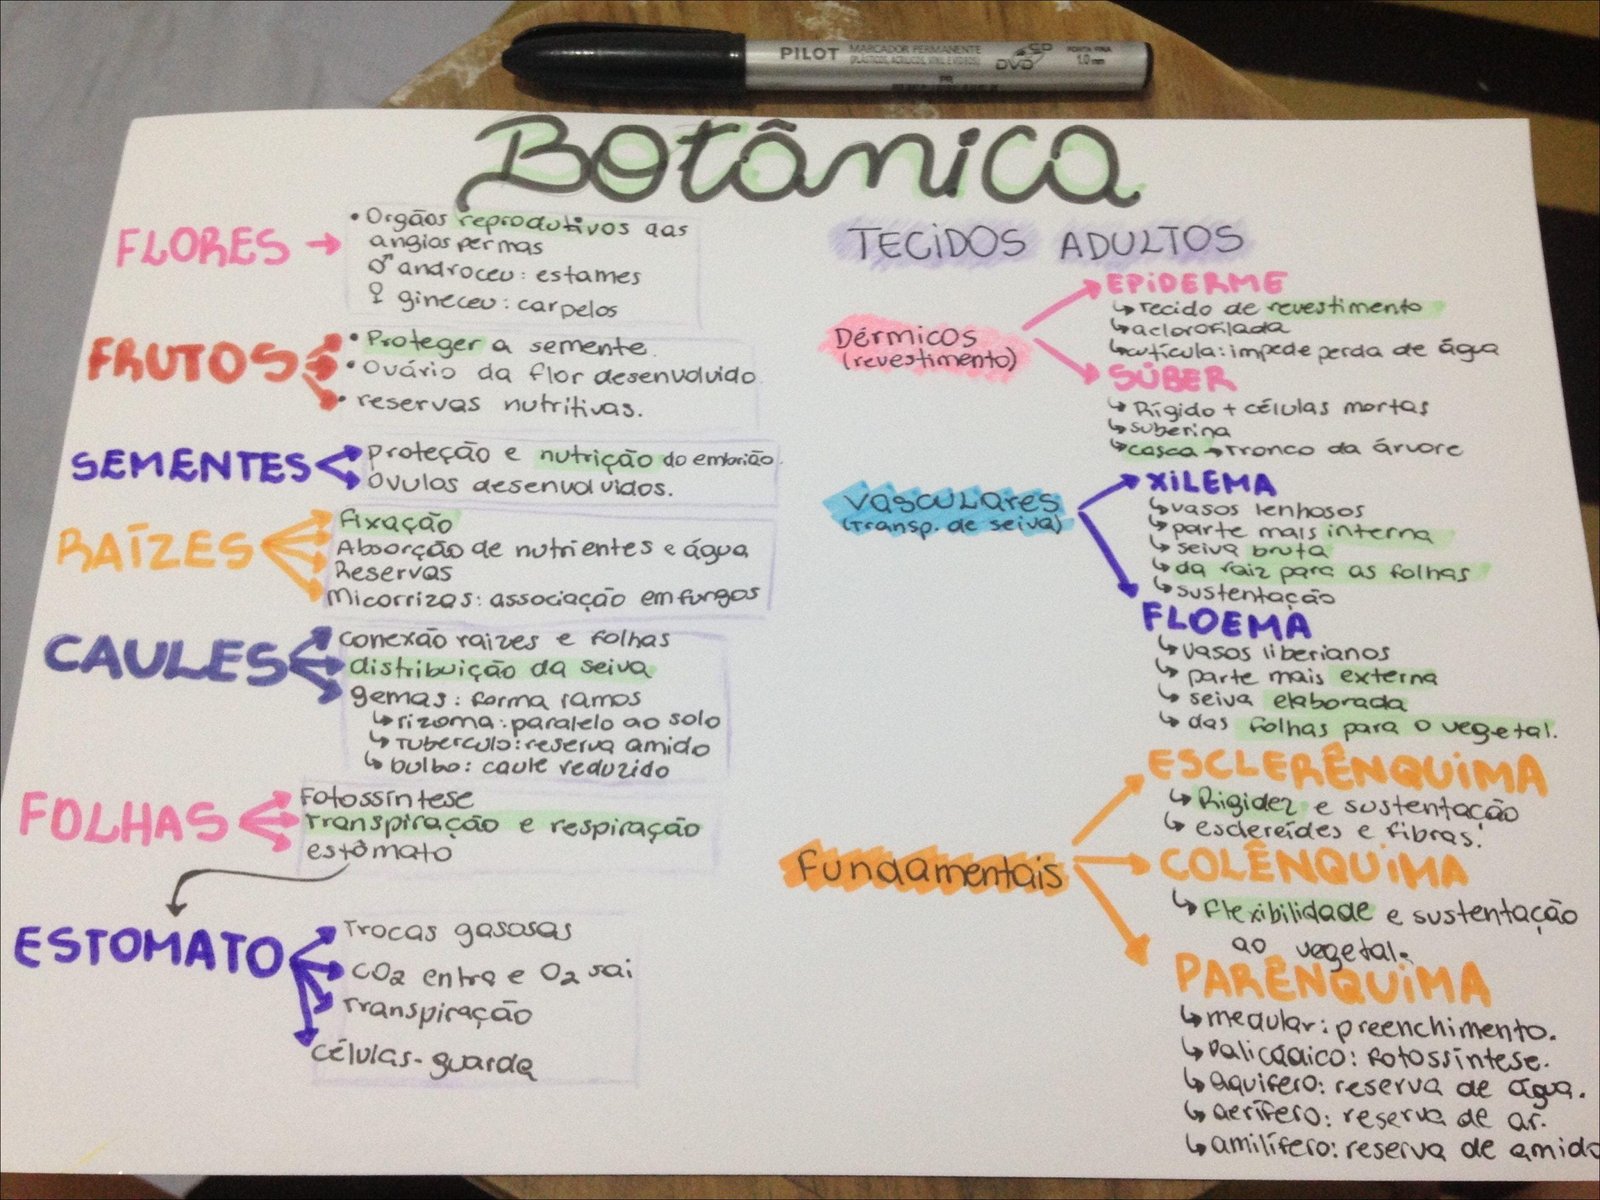 PILOT MARCADOR PERMANENTE CD DVD PONTA FINA 1.0 mm
(PLÁSTICOS, ACRÍLICOS, VINIL E VIDROS)
Botânica
FLORES
• Orgãos reprodutivos das
angiospermas
♂ androceu: estames
♀ gineceu: carpelos
FRUTOS
• Proteger a semente.
• Ovário da flor desenvolvido
• reservas nutritivas.
SEMENTES
proteção e nutrição do embrião.
Óvulos desenvolvidos.
RAÍZES
fixação
Absorção de nutrientes e água
Reservas
Micorrizas: associação em fungos
CAULES
conexão raizes e folhas
distribuição da seiva
gemas: forma ramos
↳ rizoma: paralelo ao solo
↳ Tuberculo: reserva amido
↳ bulbo: caule reduzido
FOLHAS
Fotossíntese
Transpiração e respiração
estômato
ESTOMATO
Trocas gasosas
CO2 entra e O2 sai
Transpiração
células-guarda
TECIDOS ADULTOS
Dérmicos
(revestimento)
EPIDERME
↳ Tecido de revestimento
↳ aclorofilada
↳ cutícula: impede perda de água
SÚBER
↳ Rígido + células mortas
↳ suberina
↳ casca → Tronco da árvore
Vasculares
(Transp. de seiva)
XILEMA
↳ vasos lenhosos
↳ parte mais interna
↳ seiva bruta
↳ da raiz para as folhas
↳ sustentação
FLOEMA
↳ vasos liberianos
↳ parte mais externa
↳ seiva elaborada
↳ das folhas para o vegetal.
Fundamentais
ESCLERÊNQUIMA
↳ Rigidez e sustentação
↳ esclereídes e fibras!
COLÊNQUIMA
↳ flexibilidade e sustentação
ao vegetal.
PARÊNQUIMA
↳ medular: preenchimento.
↳ Paliçádico: fotossíntese.
↳ aquífero: reserva de água.
↳ aerífero: reserva de ar.
↳ amilífero: reserva de amido